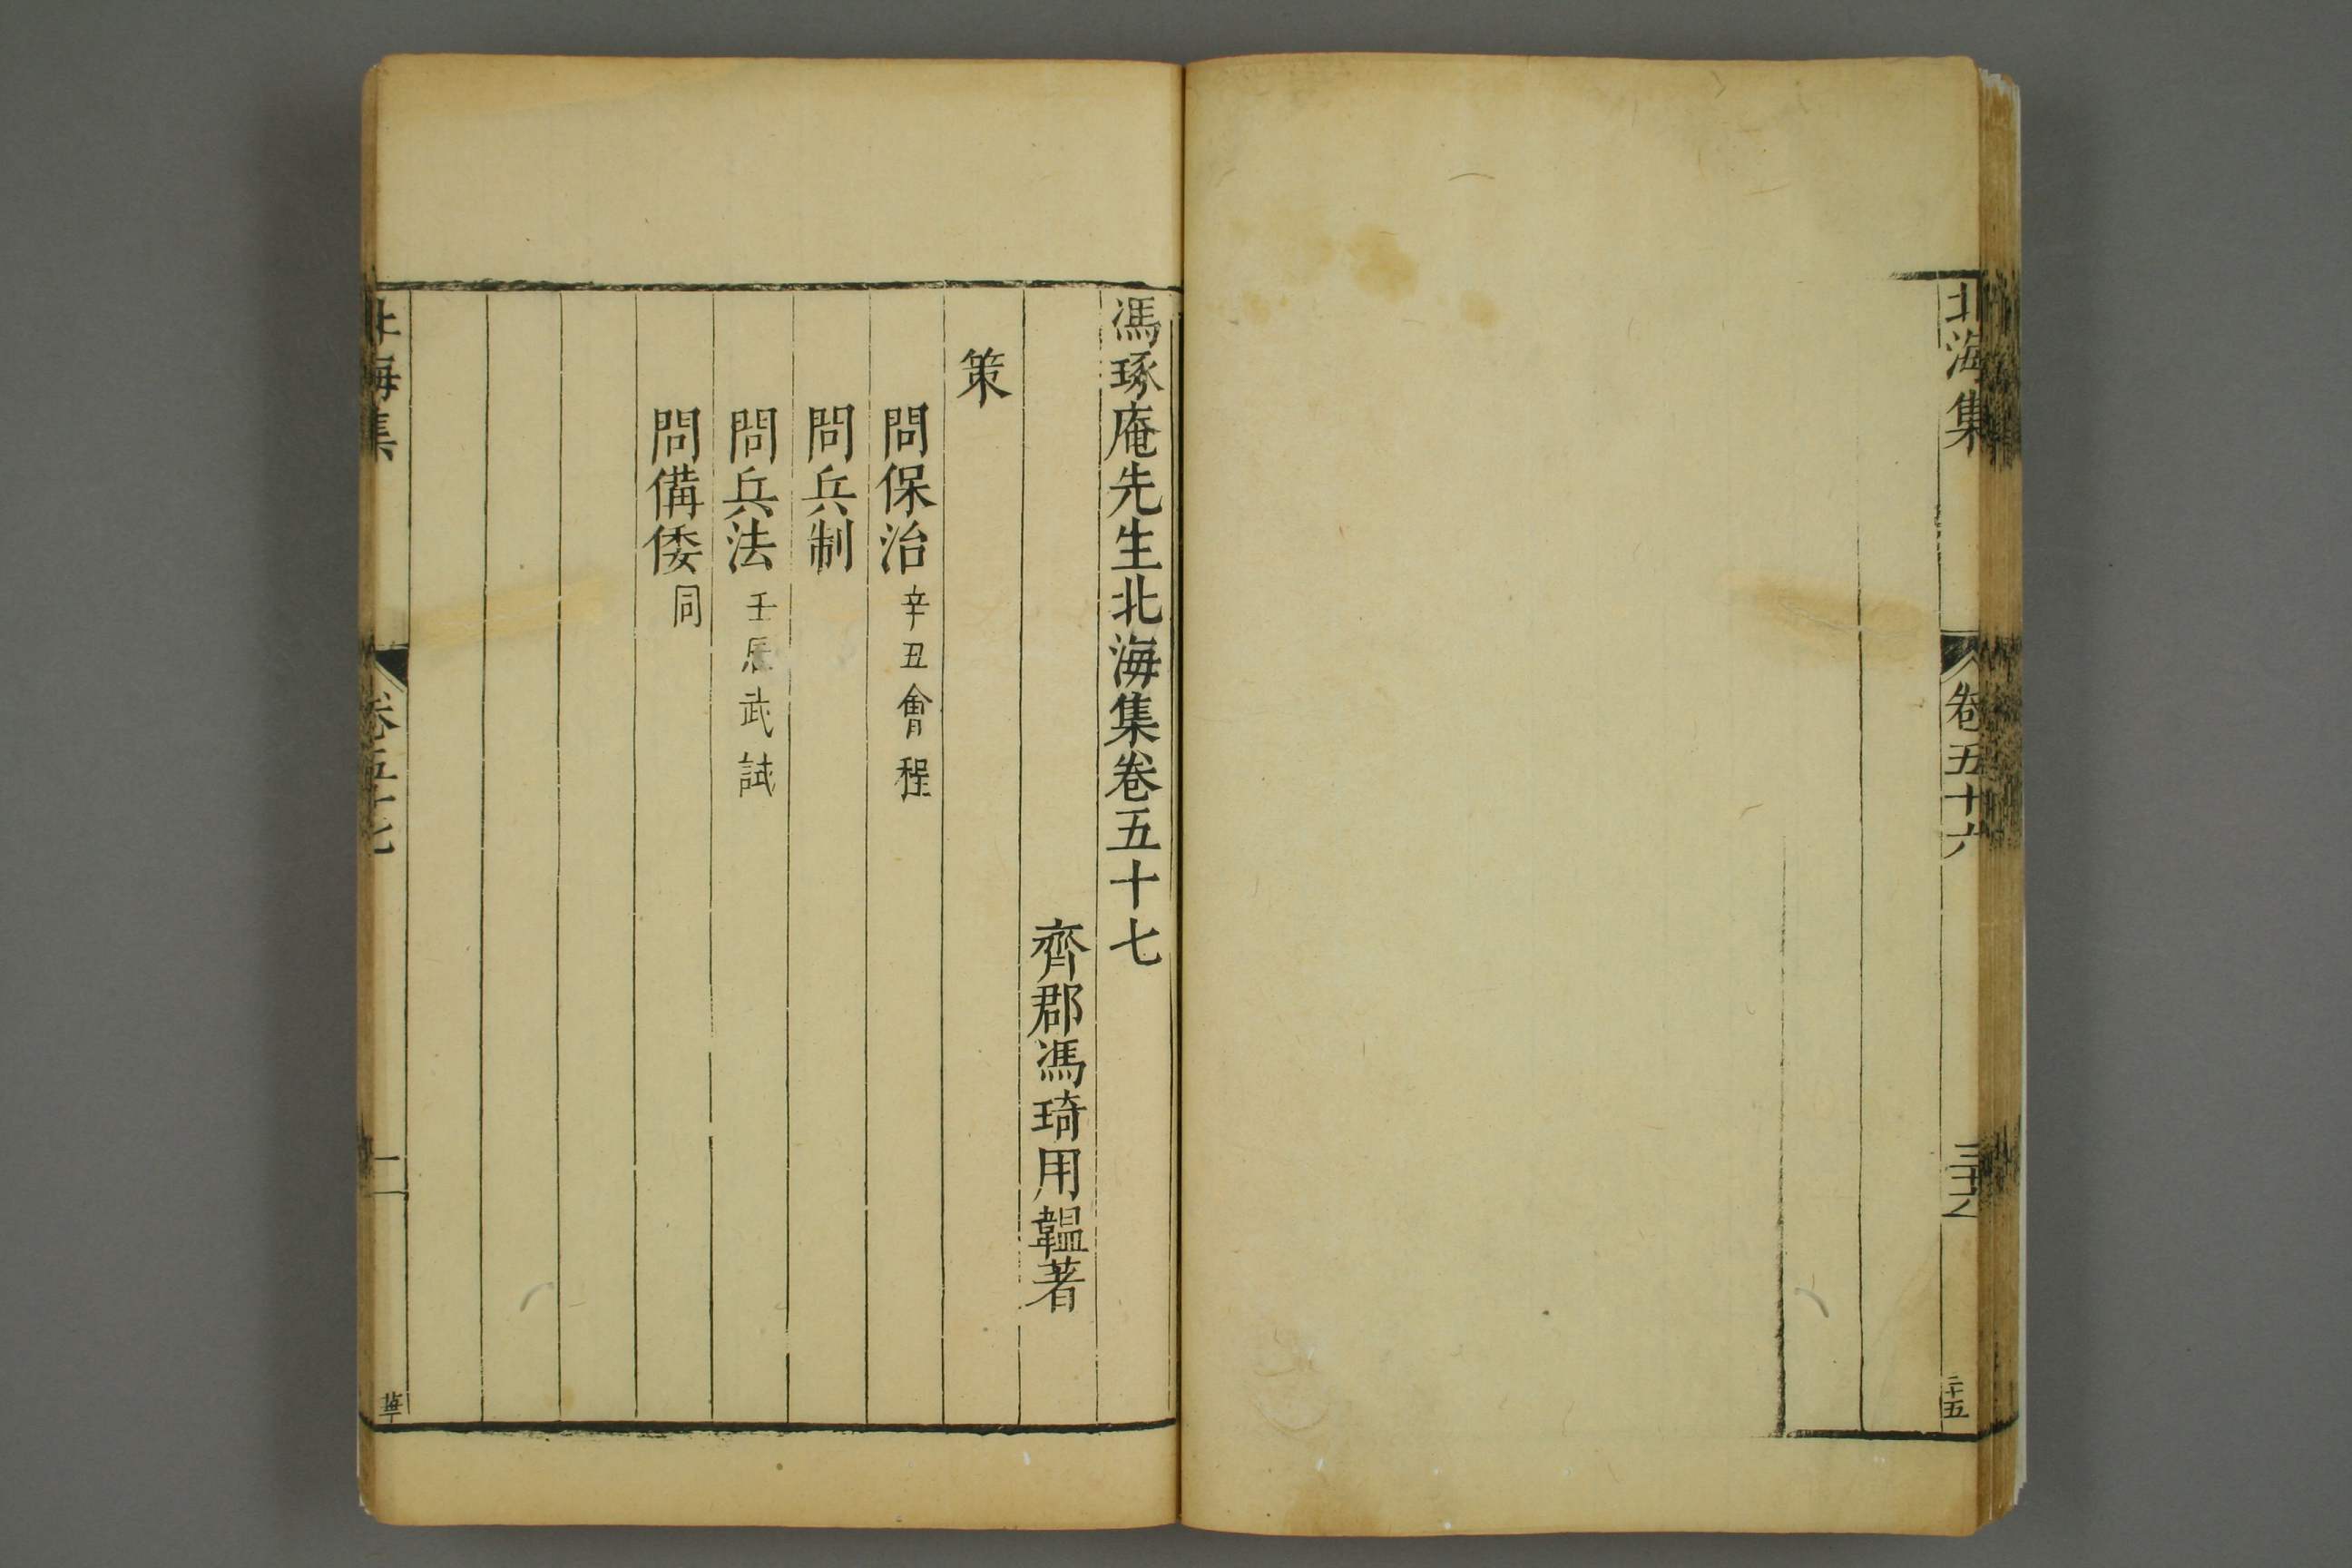 北海集
卷五十六
二十五
馮琢庵先生北海集卷五十七
齊郡馮琦用韞著
策
問保治辛丑會程
問兵制
問兵法壬辰武試
問備倭同
北海集
卷五十七
一